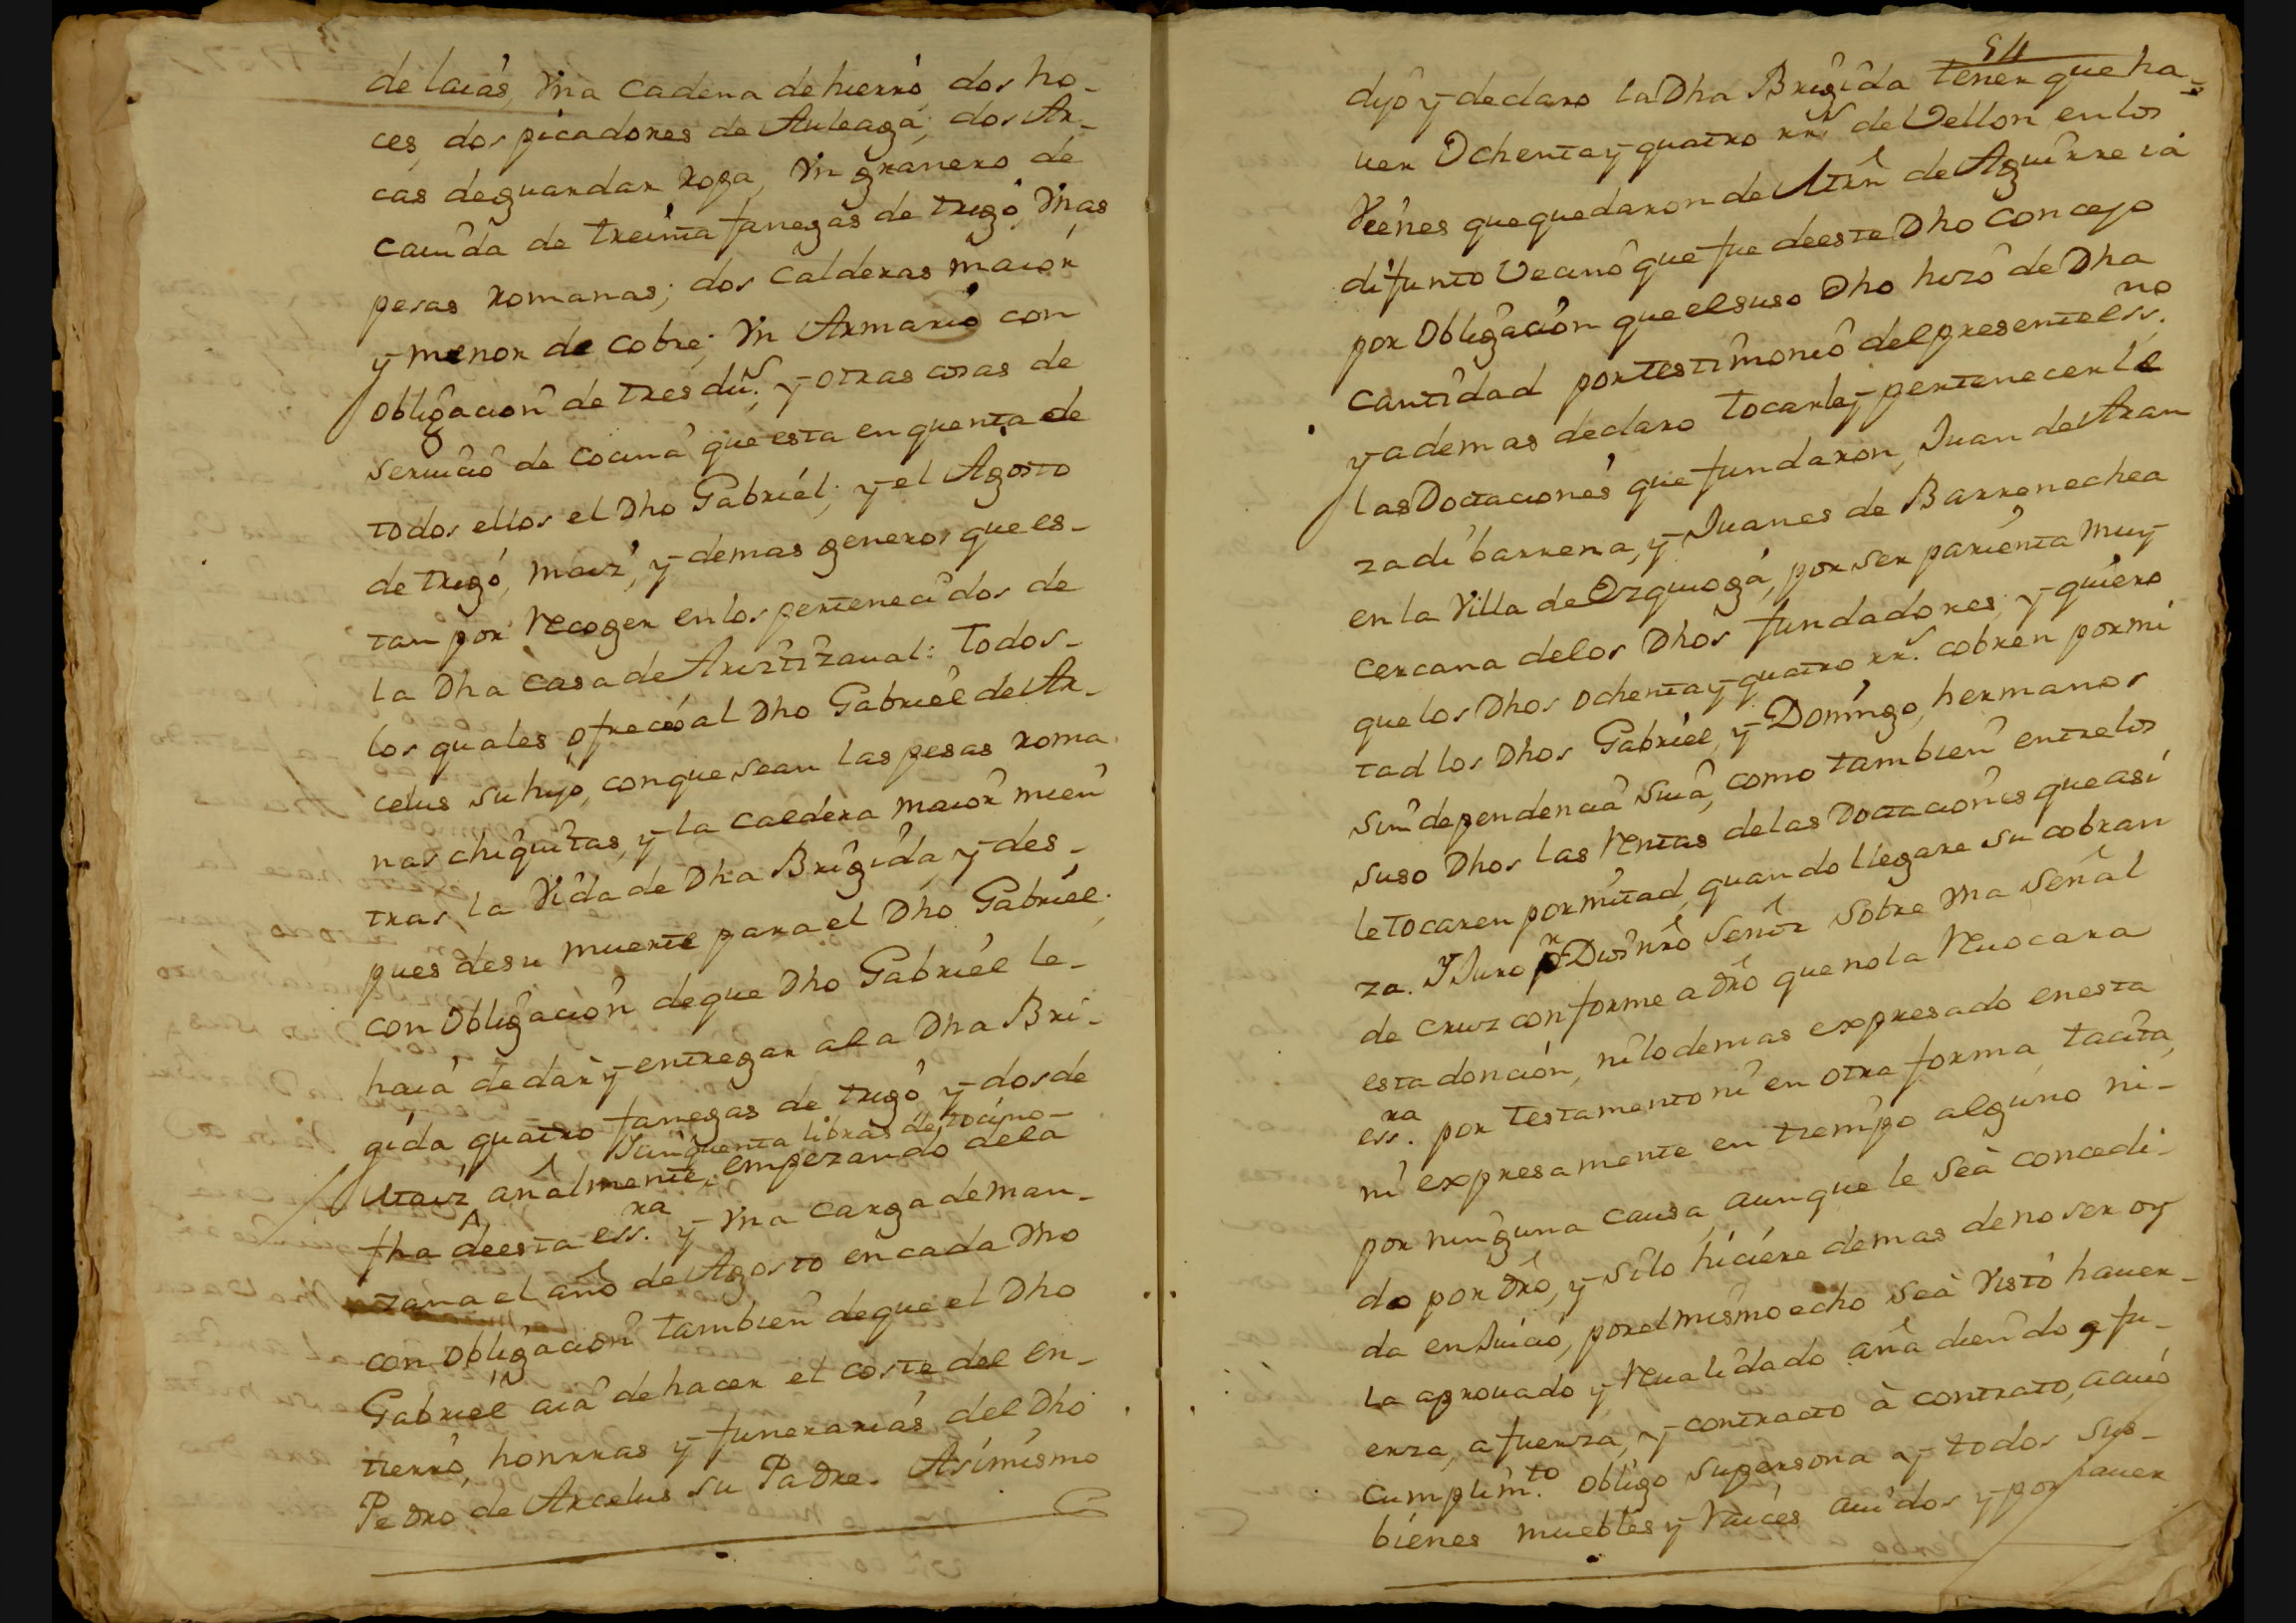 de laias, Vna cadena de hierro, dos ho-
ces, dos picadores de Auleaga; dos Ar-
cas de guardar ropa, Vn granero de
cauida de treinta fanegas de trigo, Vnas
pesas romanas; dos calderas maior
y menor de cobre; Vn Armario con
obligacion de tres dus. y otras cosas de
seruicio de cocina que esta en quenta de
todos ellos el Dho Gabriel; y el Agosto
de trigo, maiz, y demas generos que es-
tan por recoger en los pertenecidos de
la Dha casa de Ariztizaual: Todos-
los quales ofrecio al Dho Gabriel de Ar-
celus su hijo, con que sean las pesas roma
nas chiquitas, y la caldera maior mien
tras la Vida de Dha Brigida, y des-
pues de su muerte para el Dho Gabriel;
con obligacion de que Dho Gabriel le-
haia de dar y entregar a la Dha Bri-
gida quatro fanegas de trigo y dos de
Ycinquenta libras de tocino-
Maiz añalmente, empezando de la
fha de esta essra. y Vna carga de man-
zana el año de Agosto en cada Vno
con obligacion tambien de que el Dho
Gabriel aia de hacer el coste del en-
tierro, honrras y funerarias del Dho
Pedro de Arcelus su Padre. Asimismo
54
dijo y declaro la Dha Brigida tener que ha-
uer Ochenta y quatro rrs. de Vellon en los
Vienes que quedaron de Mrn de Aguirre ia
difunto Vecino que fue de este Dho concejo
por Obligacion que el suso Dho hizo de Dha
cantidad por testimonio del presente essno.
y ademas declaro tocarle y pertenecerle
las Dotaciones que fundaron, Juan de Aran
zadibarrena, y Juanes de Barrenechea
en la Villa de Ezquioga, por ser parienta muy
cercana de los Dhos fundadores; y quiero
que los Dhos ochenta y quatro rrs. cobren por mi
tad los Dhos Gabriel, y Domingo, hermanos
sin dependencia suia, como tambien entre los
suso Dhos las rentas de las Dotaciones que asi
le tocaren por mitad, quando llegare su cobran
za. Y Juro pr Dios nro señor sobre Vna señal
de cruz conforme a dro que no la reuocara
esta doncion, ni lo demas expresado en esta
essra. por testamento ni en otra forma, tacita,
ni expresamente en tiempo alguno ni-
por ninguna causa, aunque le sea concedi-
do por dro, y si lo hiciere demas de no ser oy
da en Juicio, por el mismo echo sea Visto hauer-
la aprouado y reualidado añadiendo fu-
erza, a fuerza, y contracto à contrato, a cuio
cumplimto. obligo su persona y todos sus-
bienes muebles y raices auidos y por hauer